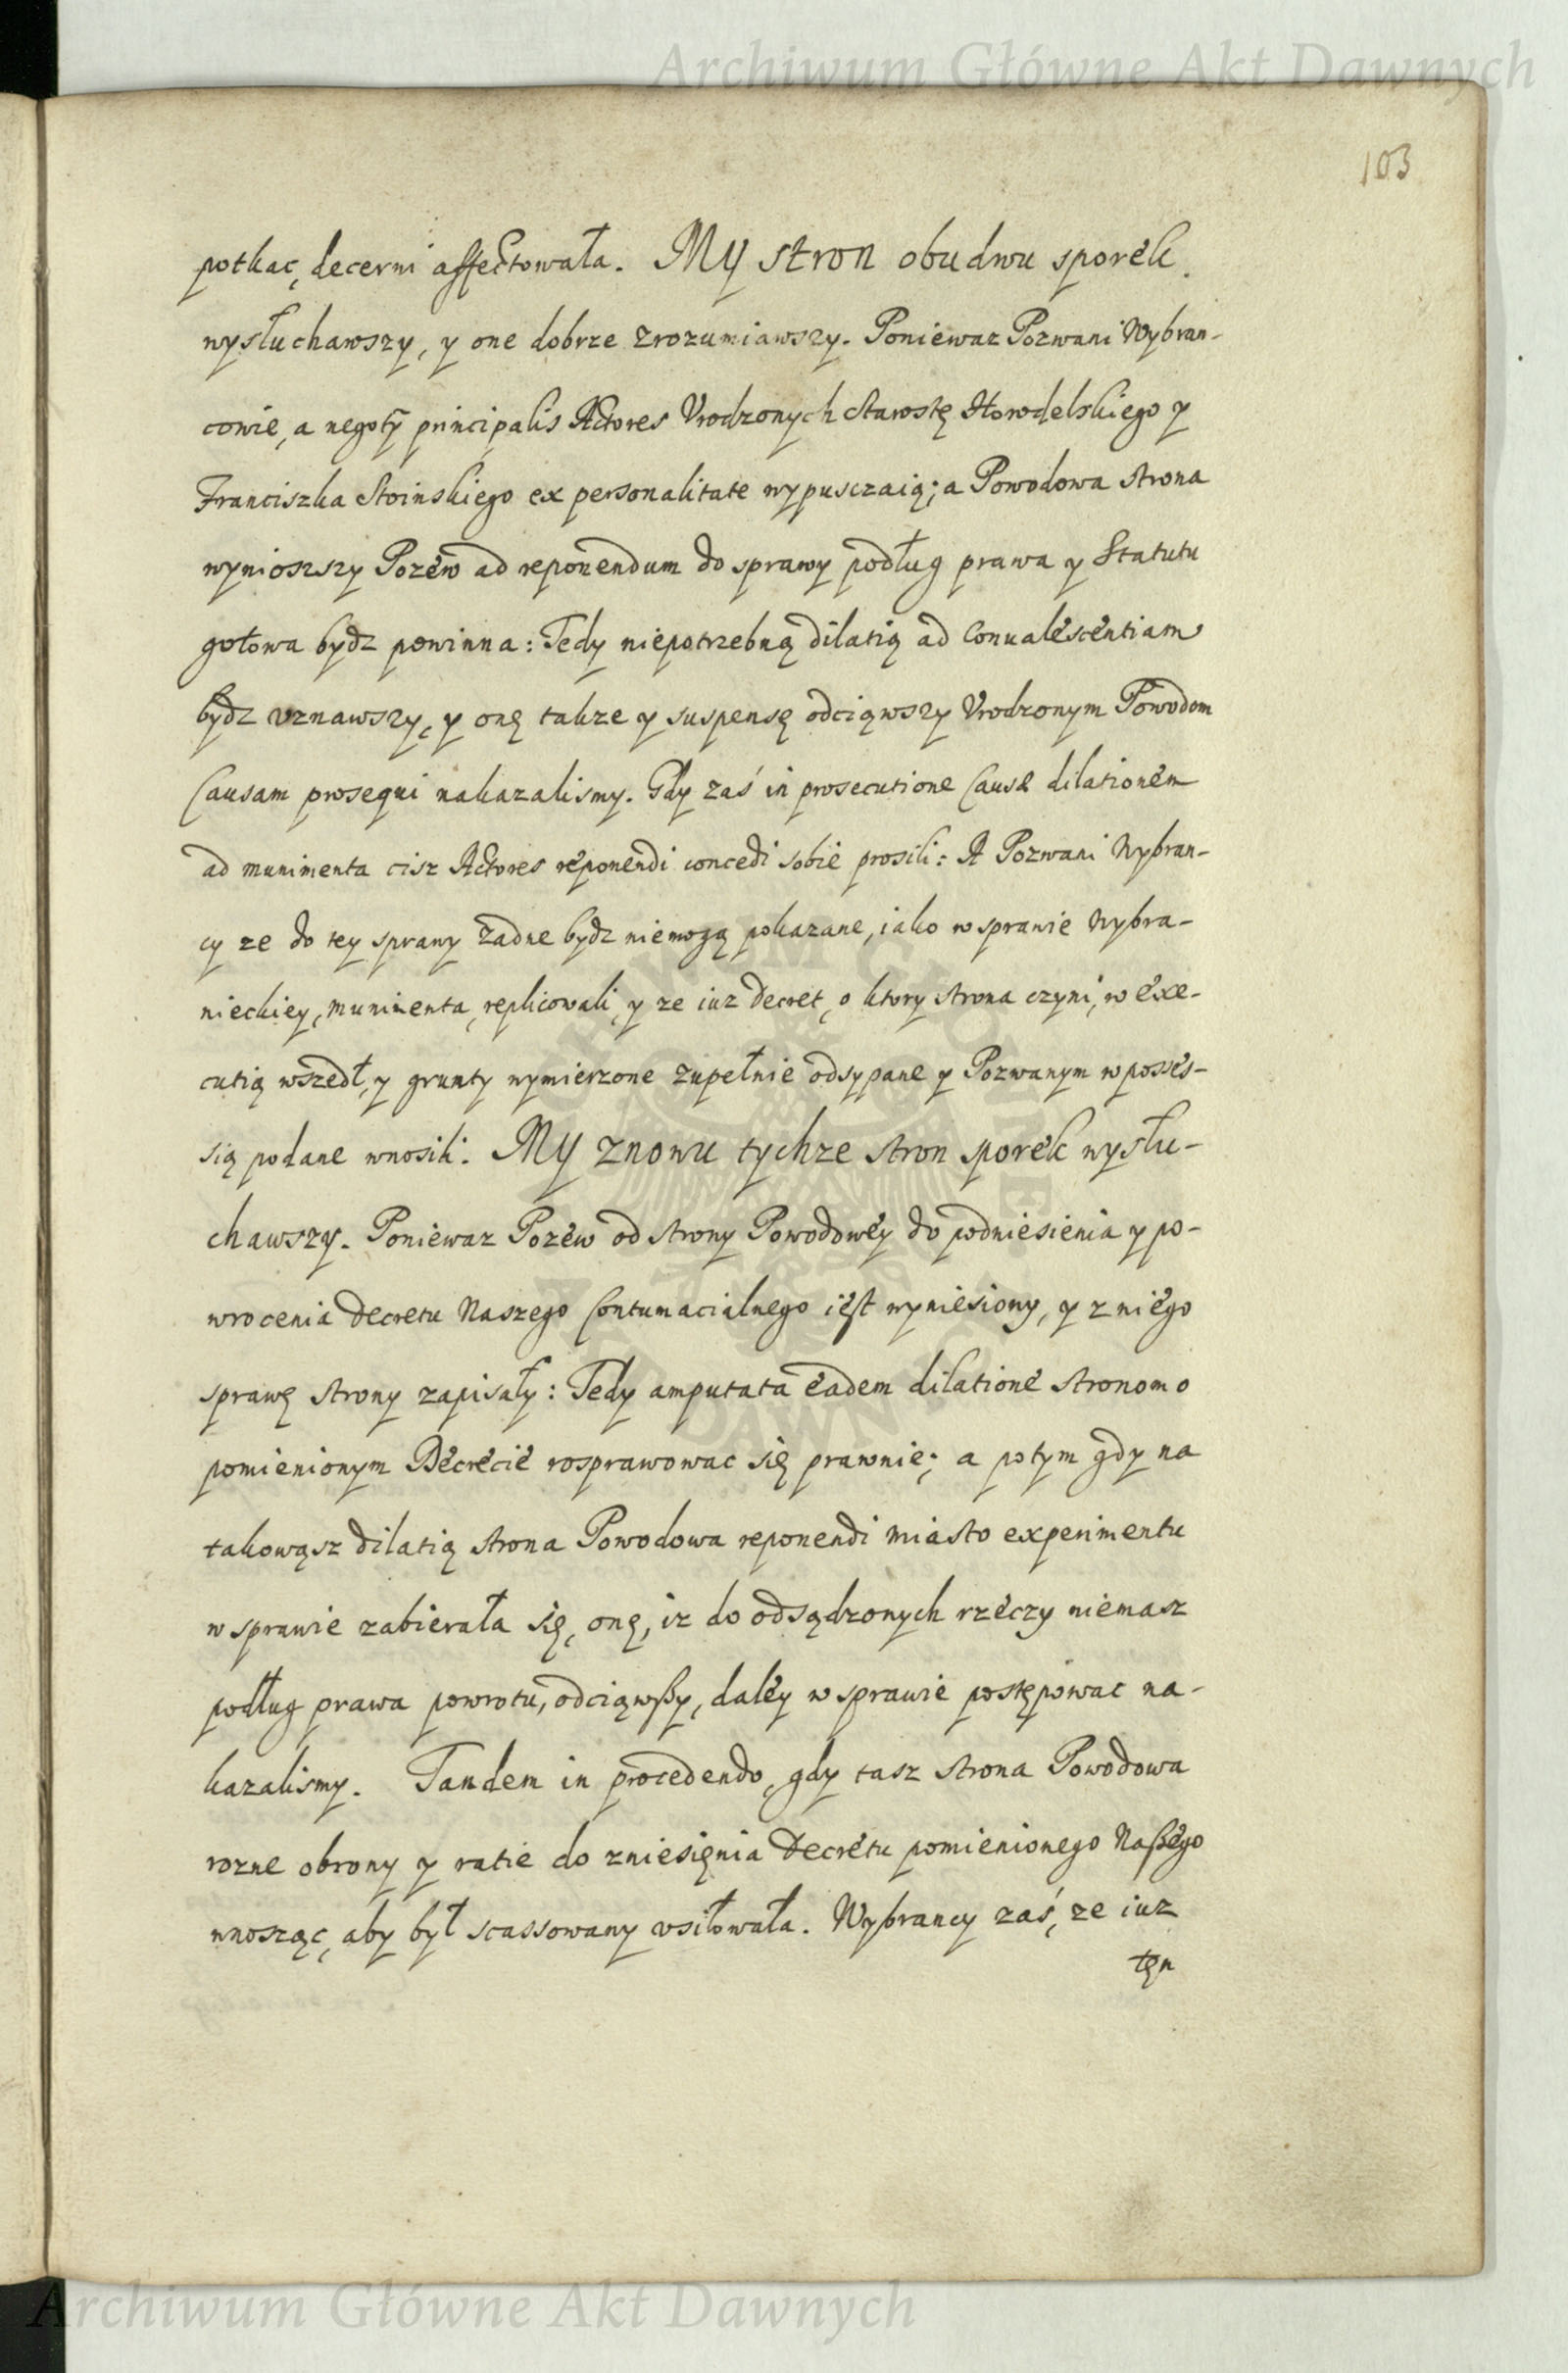 Archiwum Główne Akt Dawnych
103
potkac, decerni affectowała. My stron obudwu sporek
wysłuchawszy, y one dobrze zrozumiawszy. Poniewaz Pozwani Wybran-
cowie, a negotÿ principalis Actores Vrodzonych Starostę Horodelskiego y
Franciszka Stoinskiego ex personalitate wypusczaią; a Powodowa strona
wyniozszy Pozew ad reponendum do sprawy podług prawa y Statutu
gotowa bydz powinna: Tedy niepotrzebną dilatią ad Conualescentiam
bydz vznawszy, y onę takze y suspensę odciąwszy Vrodzonym Powodom
Causam prosequi nakazalismy. Gdy zaś in prosecutione Causæ dilationem
ad munimenta cisz Actores reponendi concedi sobie prosili: A Pozwani Wybran-
cy ze do tey sprawy zadne bydz niemogą pokazane, iako w sprawie Wybra-
nieckiey, munimenta, replicowali, y ze iuz decret, o ktory strona czyni, w exe-
cutią wszedł, y grunty wymierzone zupełnie odsypane y Pozwanym w posses-
sią podane wnosili. My znowu tychze stron sporek wysłu-
chawszy. Poniewaz Pozew od strony Powodowey do podniesienia y po-
wrocenia decretu Naszego Contumacialnego iest wyniesiony, y z niego
sprawę strony zapisały: Tedy amputata eadem dilatione stronom o
pomienionym Decrecie rosprawowac się prawnie; a potym gdy na
takowąsz dilatią strona Powodowa reponendi miasto experimentu
w sprawie zabierała się, onę, iz do odsądzonych rzeczy niemasz
podług prawa powrotu, odciąwszy, daley w sprawie postępowac na-
kazalismy. Tandem in procedendo, gdy tasz strona Powodowa
rozne obrony y ratie do zniesięnia Decretu pomienionego Naszego
wnosząc, aby był scassowany vsiłowała. Wybrancy zaś, ze iuz
tęn
Archiwum Główne Akt Dawnych